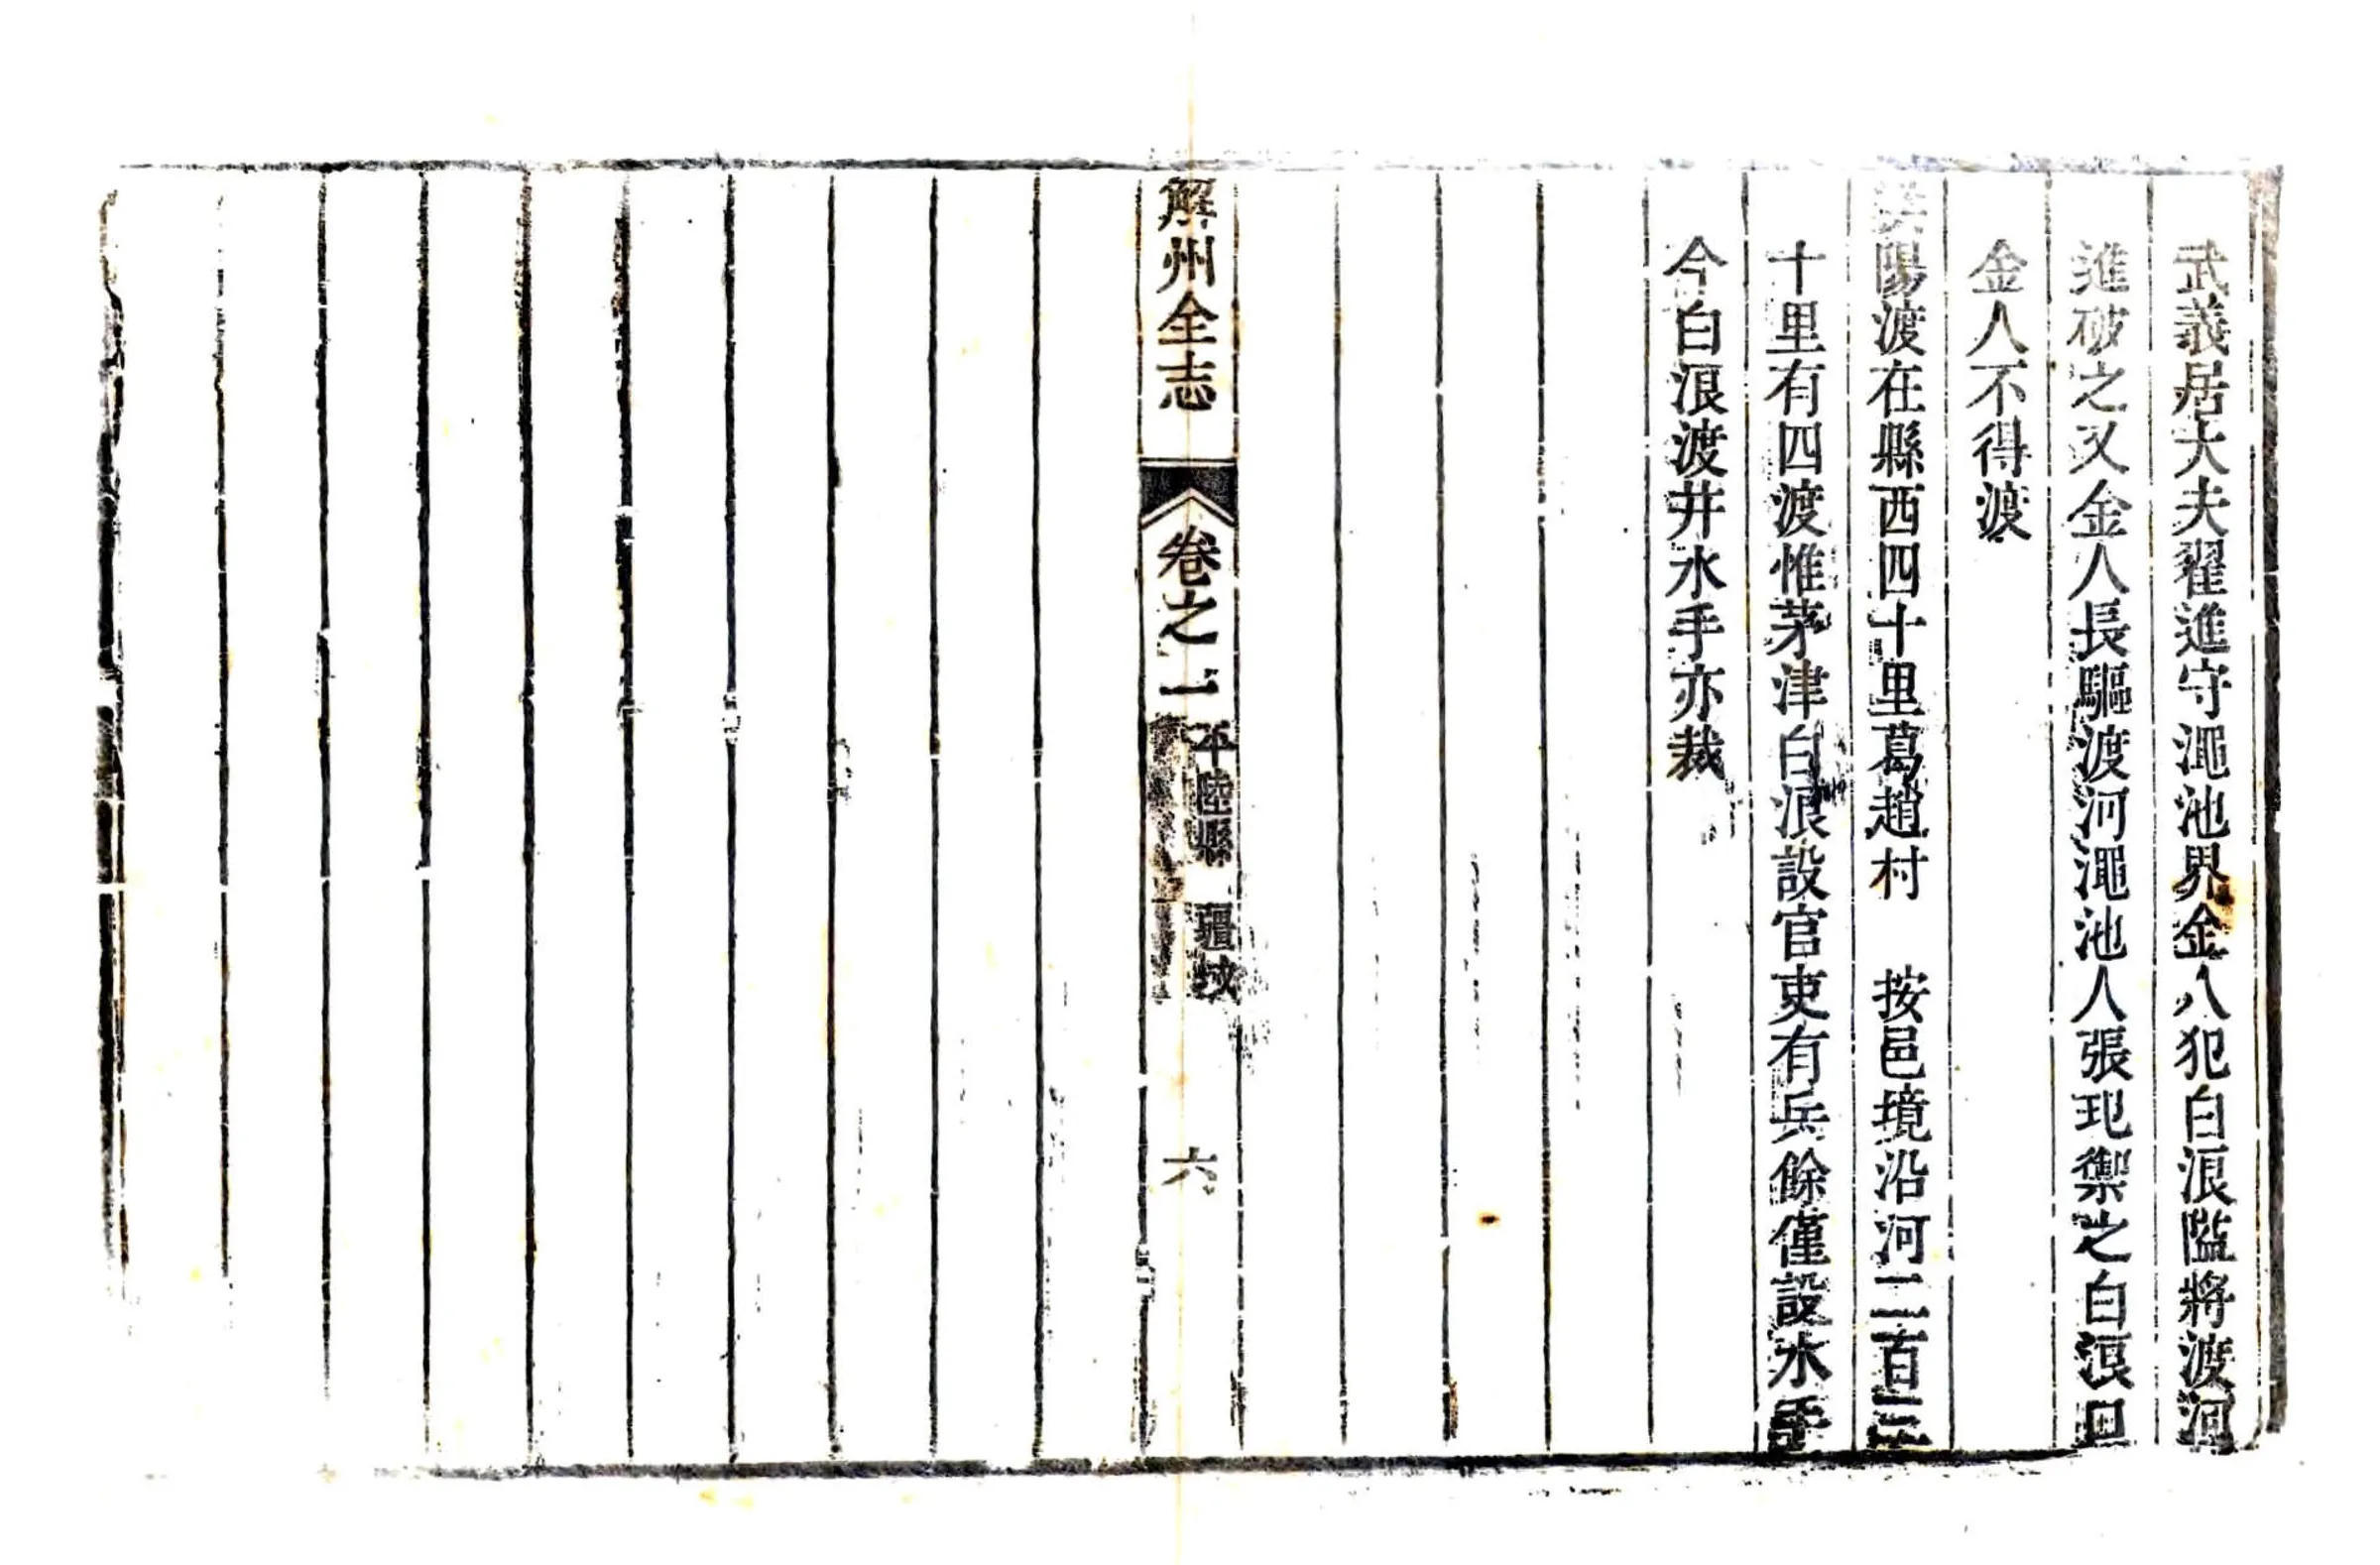 武義居大夫翟進守澠池界金人犯白浪隘將渡河
進破之又金人長驅渡河澠池人張玘禦之白浪口
金人不得渡
陽渡在縣西四十里葛趙村　按邑境沿河二百三
十里有四渡惟茅津白浪設官吏有兵餘僅設水手
今白浪渡并水手亦裁
解州全志　卷之一　平陸縣　疆　六